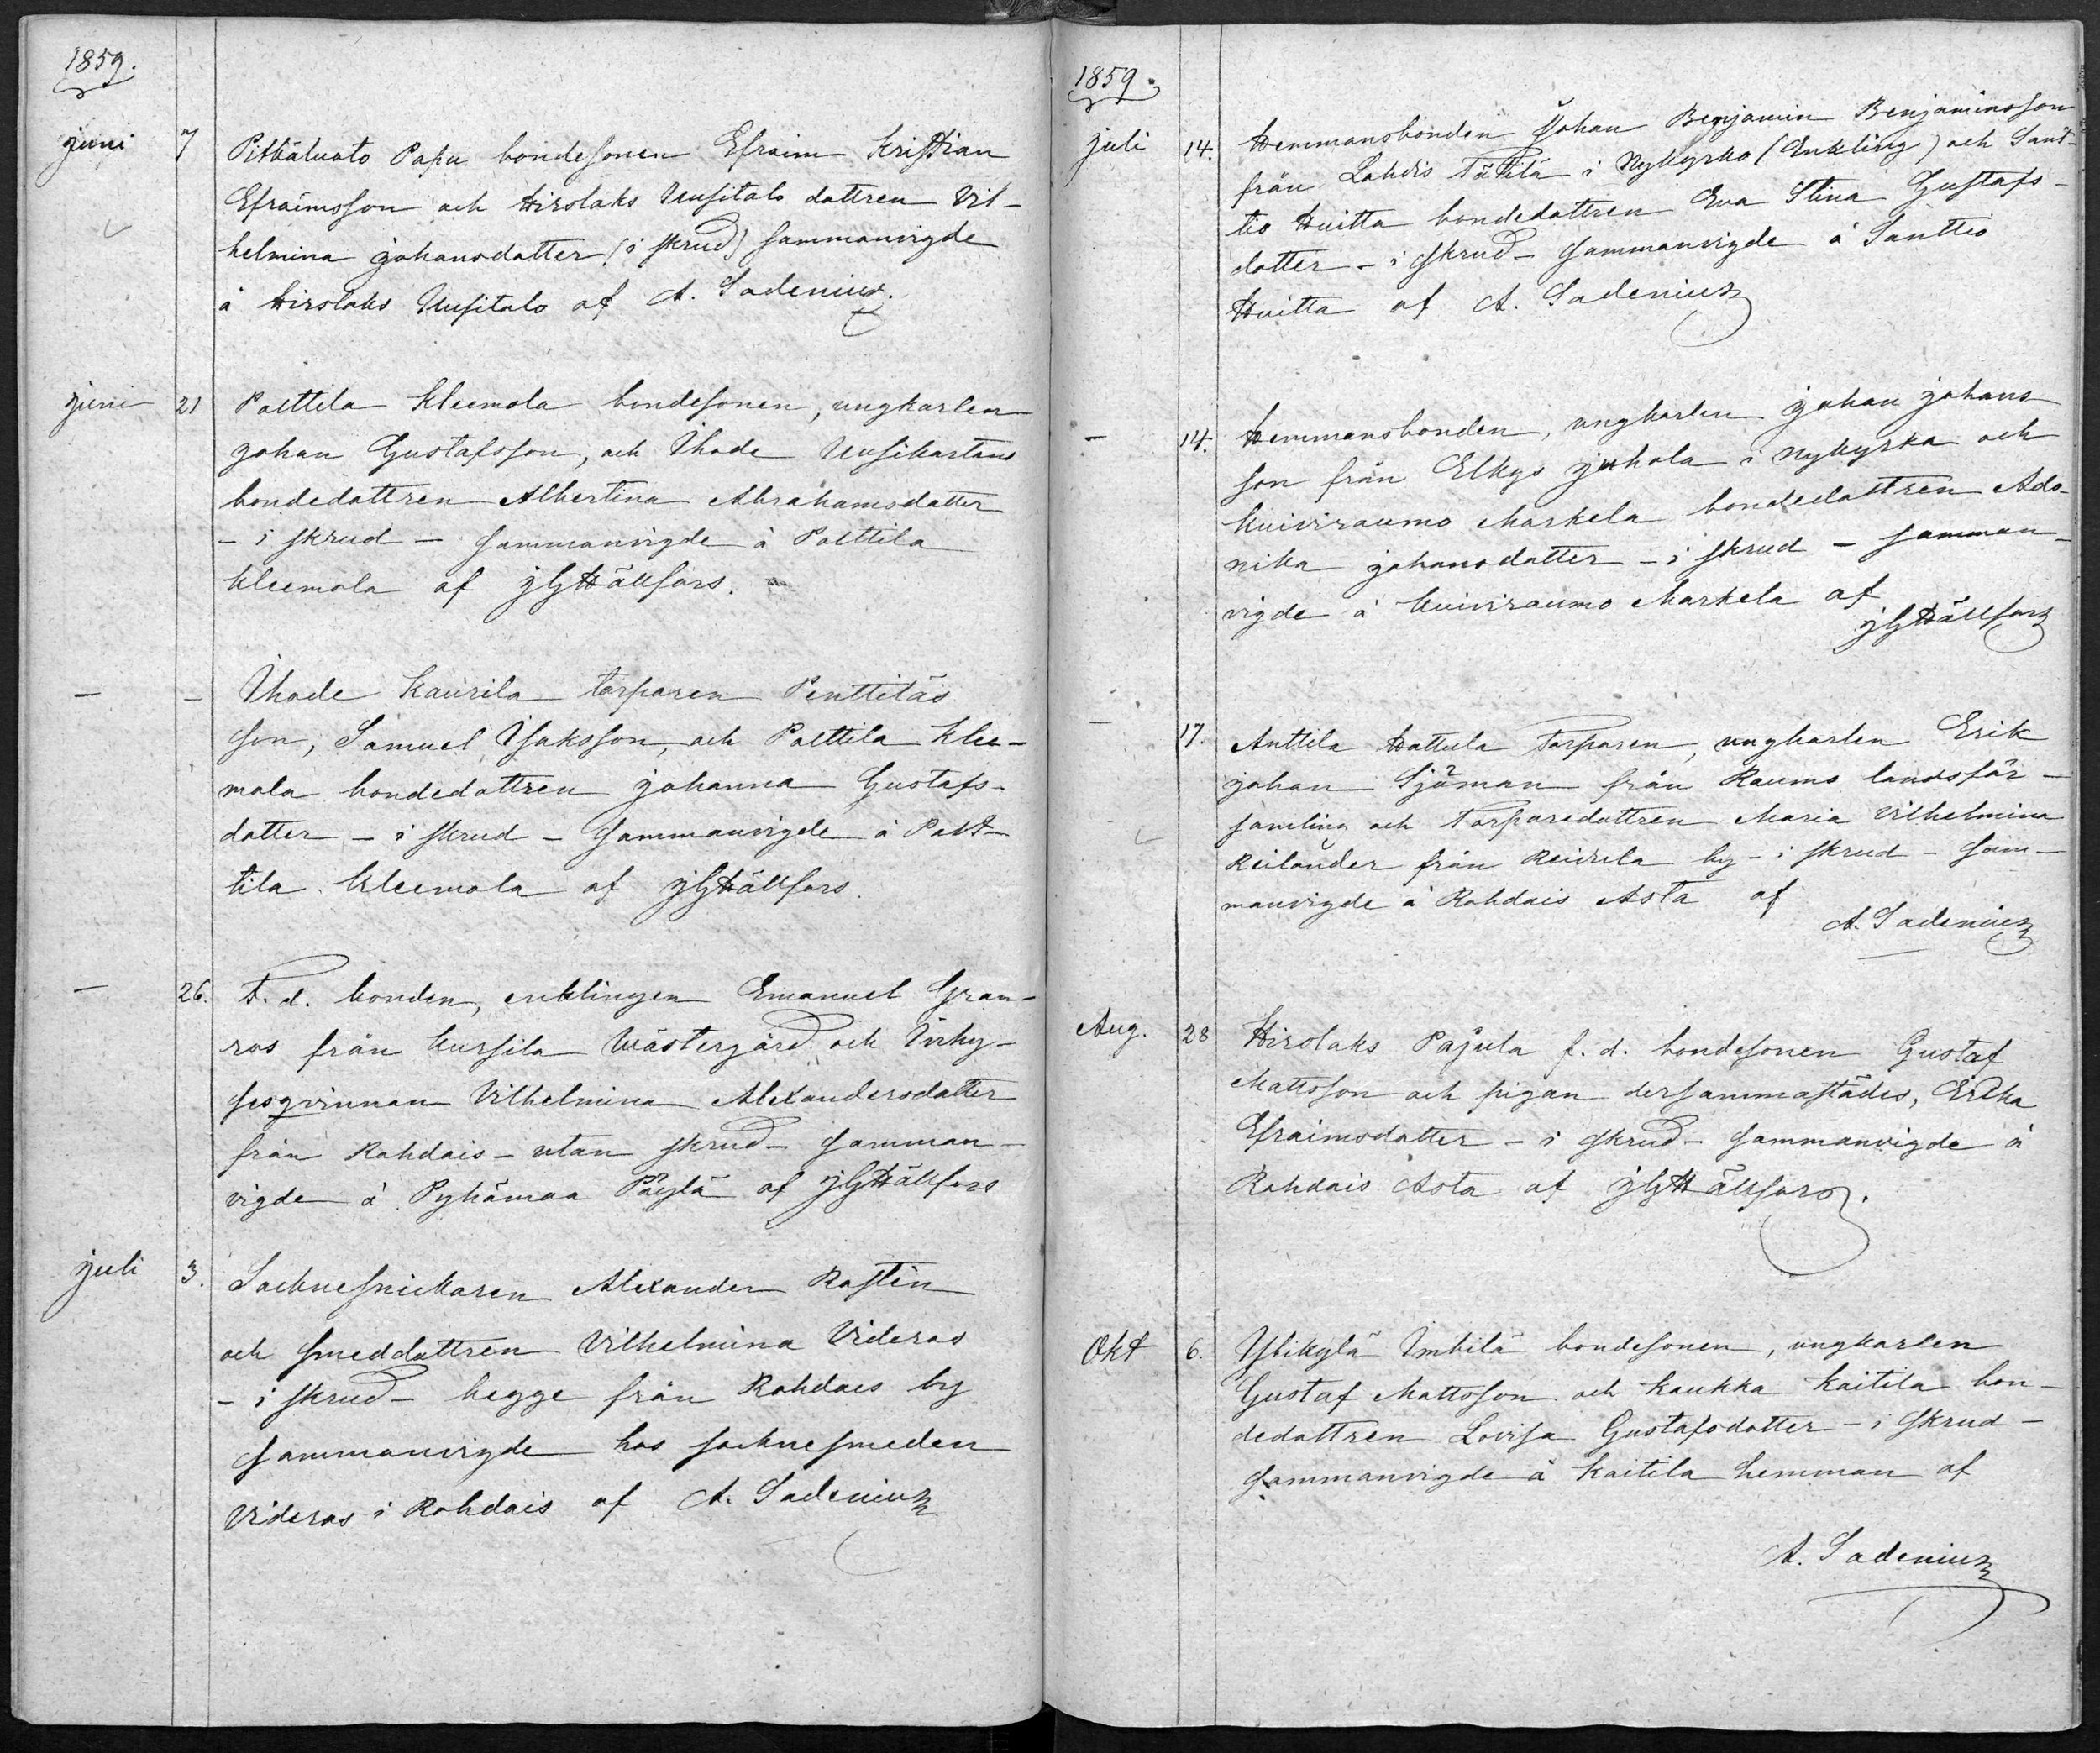 1859.
juni 7 Pitkäluoto Papu bondesonen Efraim Kristian
Efraimsson och Hirslaks Uusitalo dottren Vil-
helmina Johansdotter (i skrud) sammanvigde
å Hirslaks Uusitalo af A. Sadenius.
juni 21 Polttila Kleemola bondesonen, ungkarlen
Johan Gustafsson, och Ihode Uusikartano
bondedottren Albertina Abrahamsdotter
- i skrud - sammanvigde å Polttila
Kleemola af JGHällfors.
- - Ihode Kaurila torparen Penttiläs
son, Samuel Isaksson, och Polttila Klee-
mola bondedottren Johanna Gustafs-
dotter - i skrud - sammanvigde å Polt-
tila Kleemola af JGHällfors.
- 26. F. d. bonden, enklingen Emanuel Gran-
ros från Kursila Wästergård och Inhy-
sesqvinnan Vilhelmina Alexandersdotter
från Rohdais - utan skrud - samman-
vigde å Pyhämaa Päylä af JGHällfors
juli 3. Socknesnickaren Alexander Rostén
och smeddottren Vilhelmina Videros
- i skrud - begge från Rohdais by
sammanvigde hos socknesmeden
Videros i Rohdais af A. Sadenius
1859.
juli 14. Hemmansbonden Johan Benjamin Benjaminsson
från Lahdis Tätilä i Nykyrko (Enkling) och Sant-
tio Huitta bondedottren Eva Stina Gustafs-
dotter - i skrud - sammanvigde å Santtio
Huitta af A. Sadenius
- 14. Hemmansbonden, ungkarlen Johan Johans
son från Elkys Juhola i Nykyrka och
Kuiviraumo Markela bondedottren Ado-
nika Johansdotter - i skrud - samman-
vigde å Kuiviraumo Markela af
JGHällfors
- 17. Anttila Hattula Torparen, ungkarlen Erik
Johan Sjöman från Raumo landsför-
samling och Torparedottren Maria Vilhelmina
Reilander från Reidila by - i skrud - sam-
manvigde å Rohdais Asta af
A. Sadenius
Aug. 28 Hirslaks Pajula f. d. bondesonen Gustaf
Mattsson och pigan dersammastädes, Erika
Efraimsdotter - i skrud - sammanvigde å
Rohdais Asta af JGHällfors.
Okt 6. Ylikylä Imbilä bondesonen, ungkarlen
Gustaf Mattsson och Kaukka Kaitila bon-
dedottren Lovisa Gustafsdotter - i skrud -
sammanvigde å Kaitila hemman af
A. Sadenius